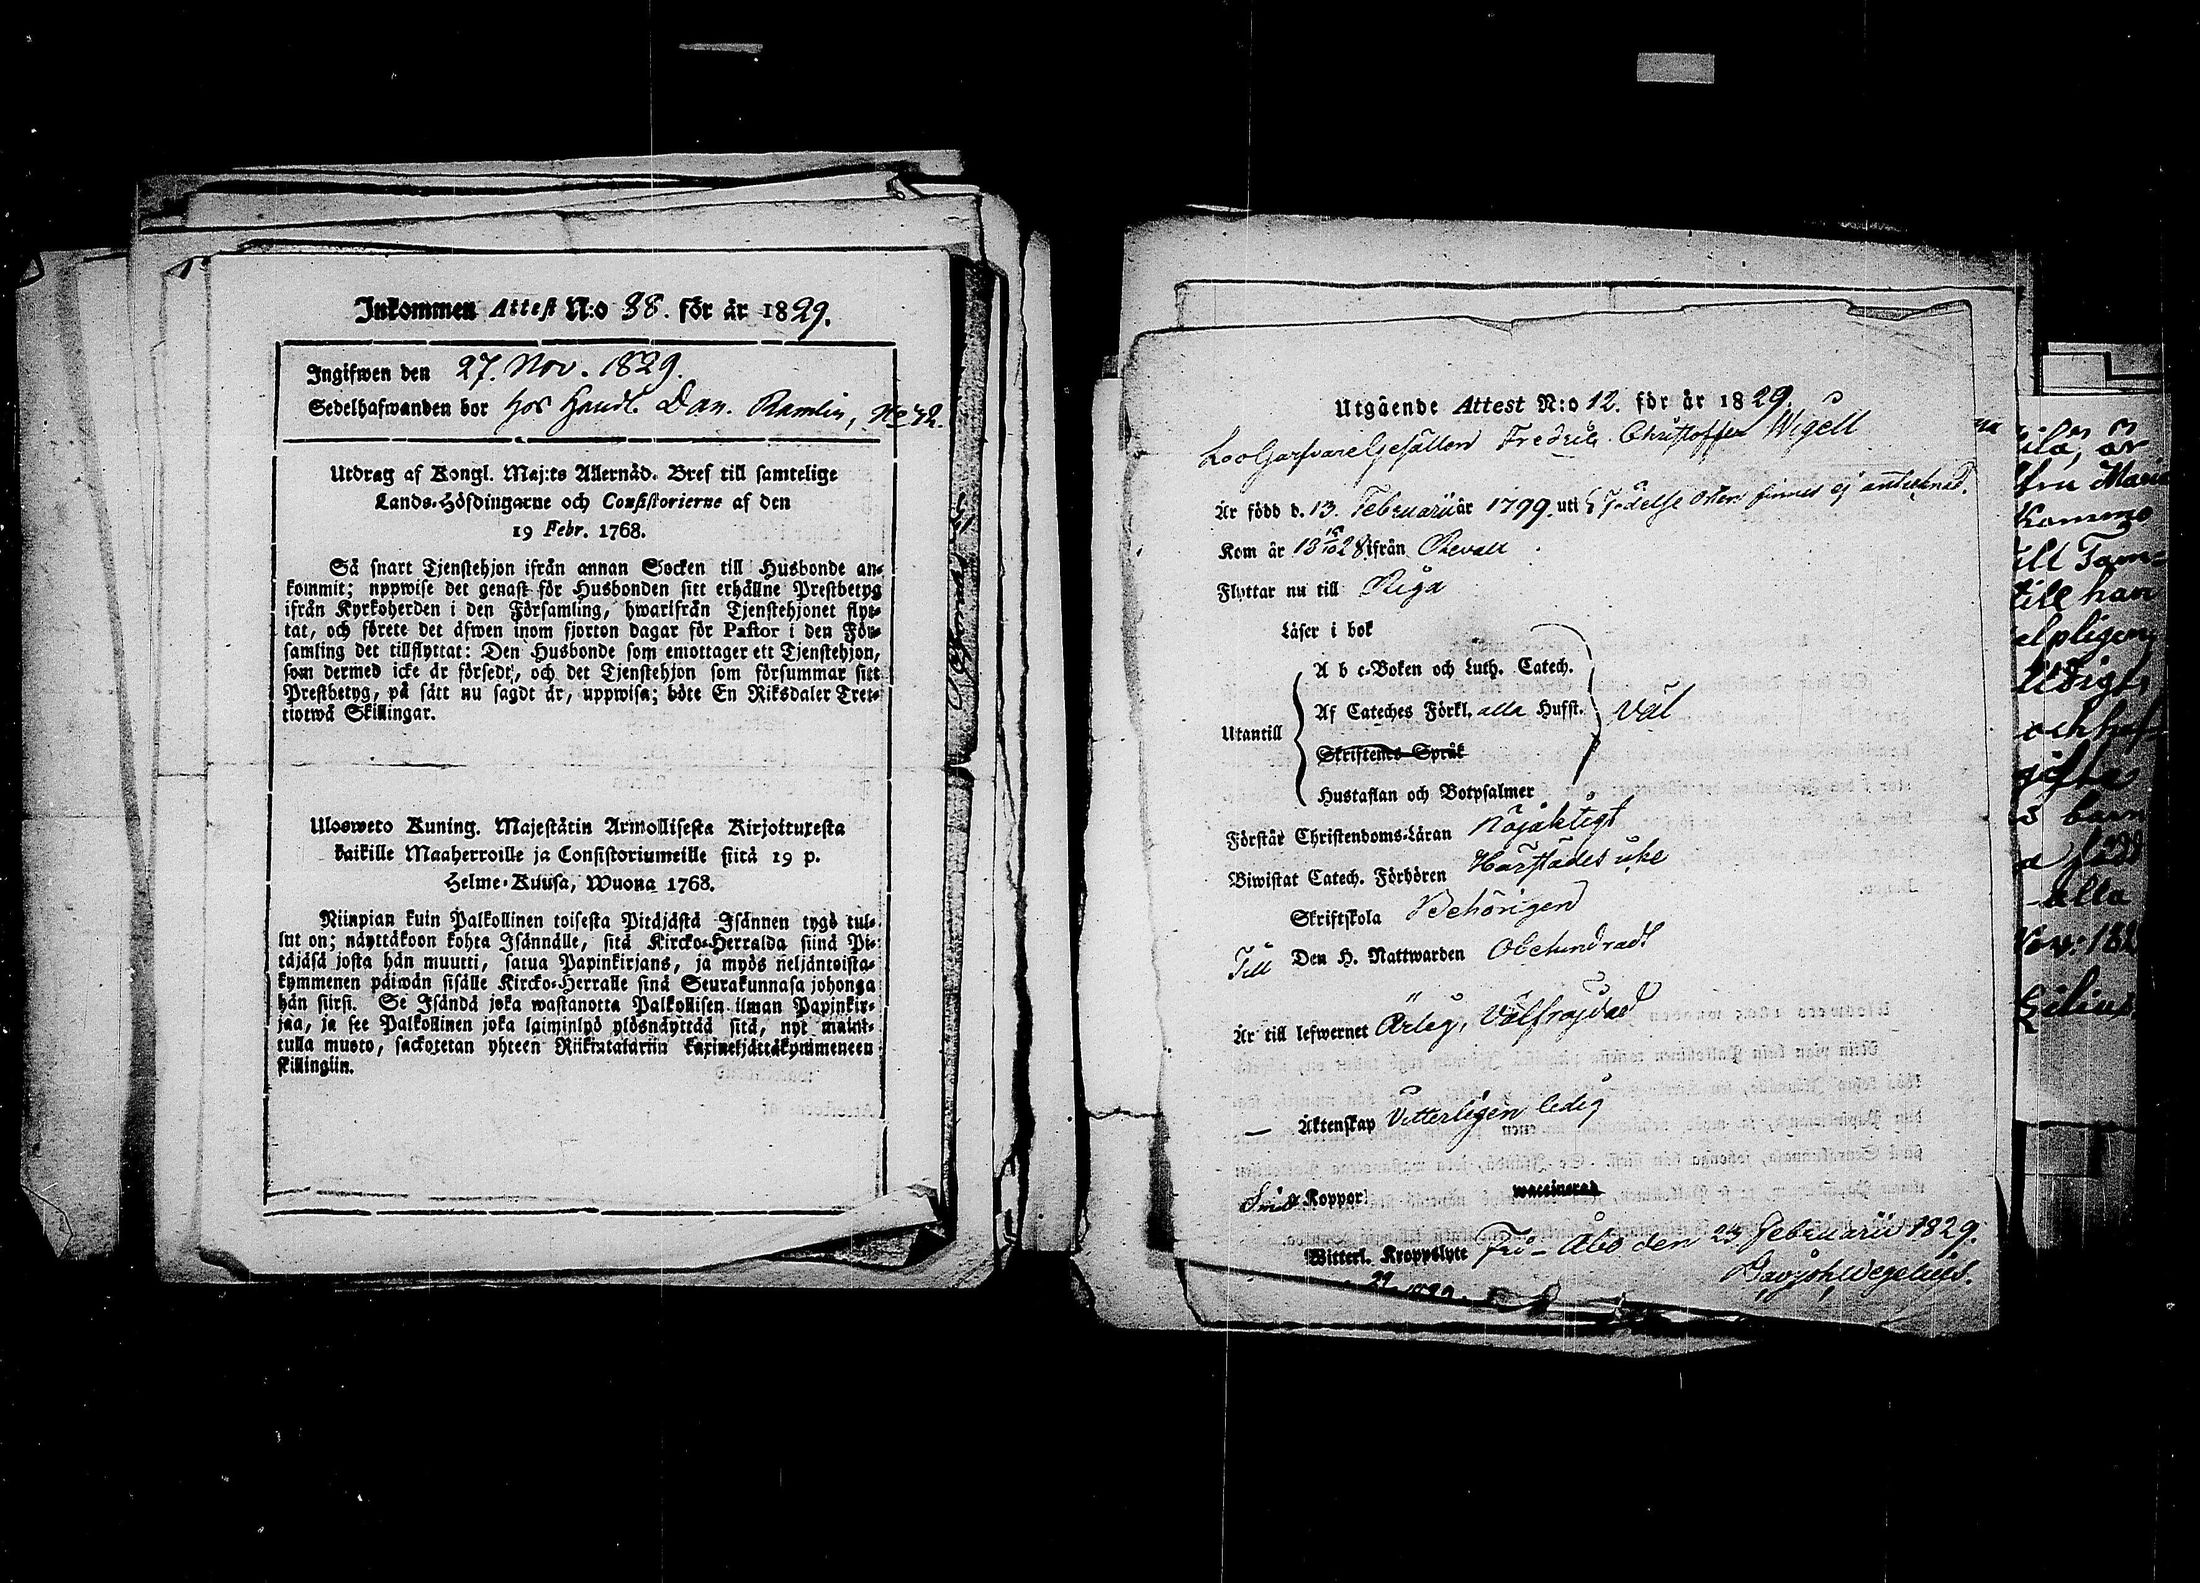 Inkommen Attest N:o 38. för år 1829.
Ingifwen den 27. Nov. 1829.
Sedelhafwanden bor hos Handl. Dan. Ramlin, No 42.
Utdrag af Kongl. Maj:ts Allernåd. Bref till samtelige
Lands-Höfdingarne och Consistorierne af den
19 Febr. 1768.
Så snart Tjenstehjon ifrån annan Socken till Husbonde an-
kommit; uppwise det genast för Husbonden sitt erhållne Prestbetyg
ifrån Kyrkoherden i den Församling, hwarifrån Tjenstehjonet flyt-
tat, och förete det äfwen inom fjorton dagar för Pastor i den För-
samling det tillflyttat: Den Husbonde som emottager ett Tjenstehjon,
som dermed icke är försedt, och det Tjenstehjon som försummar sitt
Prestbetyg, på sätt nu sagdt är, uppwisa; böte En Riksdaler Tret-
tiotwå Skillingar.
Ulosweto Kuning. Majestätin Armollisesta Kirjoituxesta
kaikille Maaherroille ja Consistoriumeille siitä 19 p.
Helme-Kuusa, Wuona 1768.
Niinpian kuin Palkollinen toisesta Pitäjästä Isännen tygö tul-
lut on; näyttäkoon kohta Isännälle, sitä Kircko-Herralda siinä Pi-
täjäsä josta hän muutti, satua Papinkirjans, ja myös neljäntoista-
kymmenen päiwän sisälle Kircko-Herralle sinä Seurakunnasa johonga
hän siirsi. Se Isändä joka wastanotta Palkollisen ilman Papinkir-
jaa, ja see Palkollinen joka laiminlyö ylösnäyttää sitä, nyt maini-
tulla muoto, sackotetan yhteen Riikintalariin kaxinekjättäkymmeneen
skillingiin.
Utgående Attest N:o 12. för år 1829.
Fredric Christoffer Wigell
Är född d. 13 Februarii år 1799. uti Födelse Orten finnes ej antecknad.
Kom år 18 28 ifrån Reval
Flyttar nu till Riga
Läser i bok
Utantill
A b c-Boken och Luth. Catech.
Af Cateches Förkl. alla Husst. Väl
Skriftenes Språk
Hustaflan och Botpsalmer
Förstår Christendoms-Läran Nöjaktigt
Biwistat Catech. Förhören Härstädes icke
Skriftskola Behörigen
Till Den H. Nattwarden Obehindradt
Är till lefwernet Ärlig, Välfrejdad
— Äktenskap Vitterligen ledig
Små Koppor! waccinerad
Witterl. Kroppslyte Fri - Åbo den 23 Februarii 1829.
Wegelius.